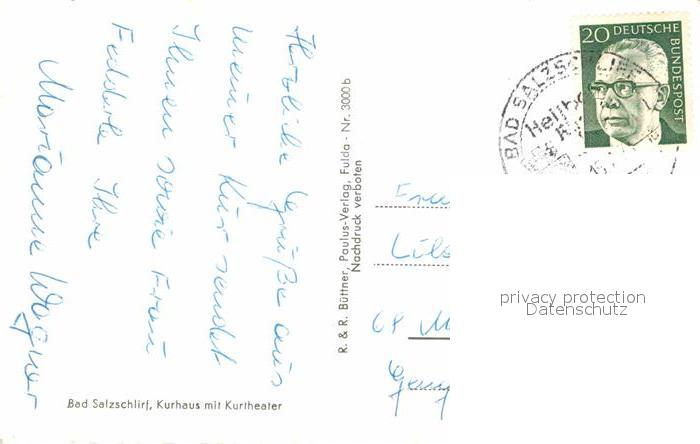 Herzliche Grüße aus
meiner Kur sendet
Ihnen sowie Frau
Fedderle Ihre
Marianne Wagner
Bad Salzschlirf, Kurhaus mit Kurtheater
R. & R. Büttner, Paulus-Verlag, Fulda - Nr. 3000 b
Nachdruck verboten
20 DEUTSCHE
BUNDESPOST
BAD SALZSCHLIRF
privacy protection
Datenschutz
68 M